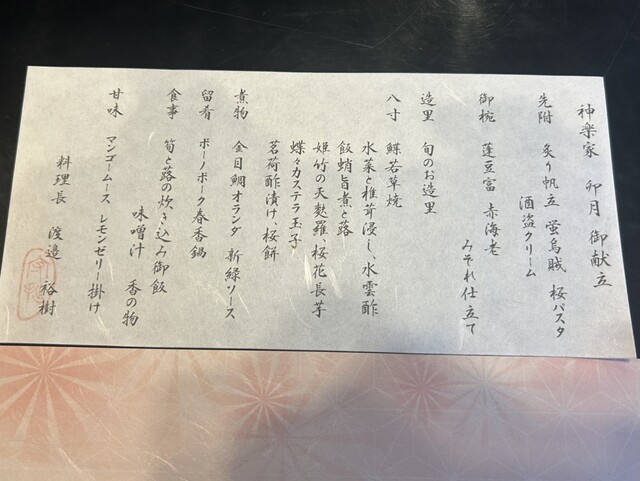 神楽家 卯月 御献立
先附 炙り帆立 蛍烏賊 桜パスタ
酒盗クリーム
御椀 蓬豆富 赤海老
みぞれ仕立て
造里 旬のお造里
八寸 鰈若草焼
水菜と椎茸浸し、水雲酢
飯蛸旨煮と蕗
姫竹の天麩羅、桜花長芋
蝶々カステラ玉子
茗荷酢漬け、桜餅
煮物 金目鯛オランダ 新緑ソース
留肴 ボーノポーク春香鍋
食事 筍と蕗の炊き込み御飯
味噌汁 香の物
甘味 マンゴームース レモンゼリー掛け
料理長 渡邉 裕樹